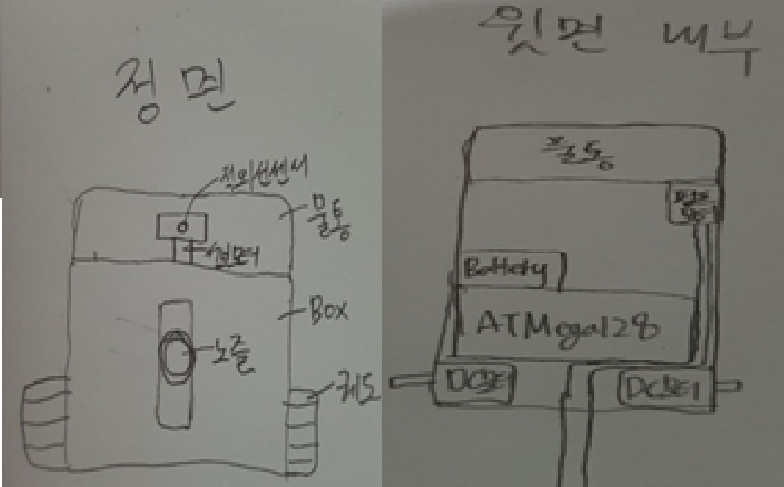 정면
적외선센서
물통
서보모터
Box
노즐
궤도
윗면 내부
물통
Battery
ATMega128
DC모터
DC모터